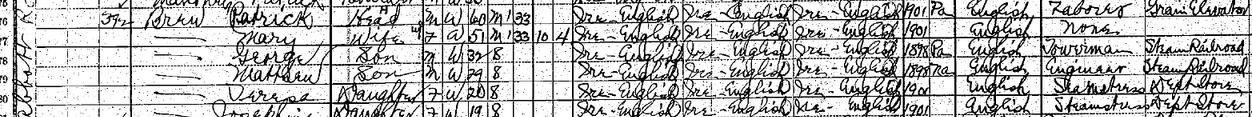 392 Patrick Head M W 60 M 33 Ire-English Ire-English Ire-English 1901 Pa English Laborer Grain Elevator
77 — Mary Wife F W 51 M 33 10 4 Ire-English Ire-English Ire-English 1901 English None
78 — George Son M W 32 S Ire-English Ire-English Ire-English 1898 Pa English Towerman Steam Railroad
79 — Matthew Son M W 29 S Ire-English Ire-English Ire-English 1898 Na English Engineer Steam Railroad
80 — Teresa Daughter F W 20 S Ire-English Ire-English Ire-English 1901 English Seamstress Dept Store
Daughter F W 19 S Ire-English Ire-English Ire-English 1901 English Seamstress Dept Store